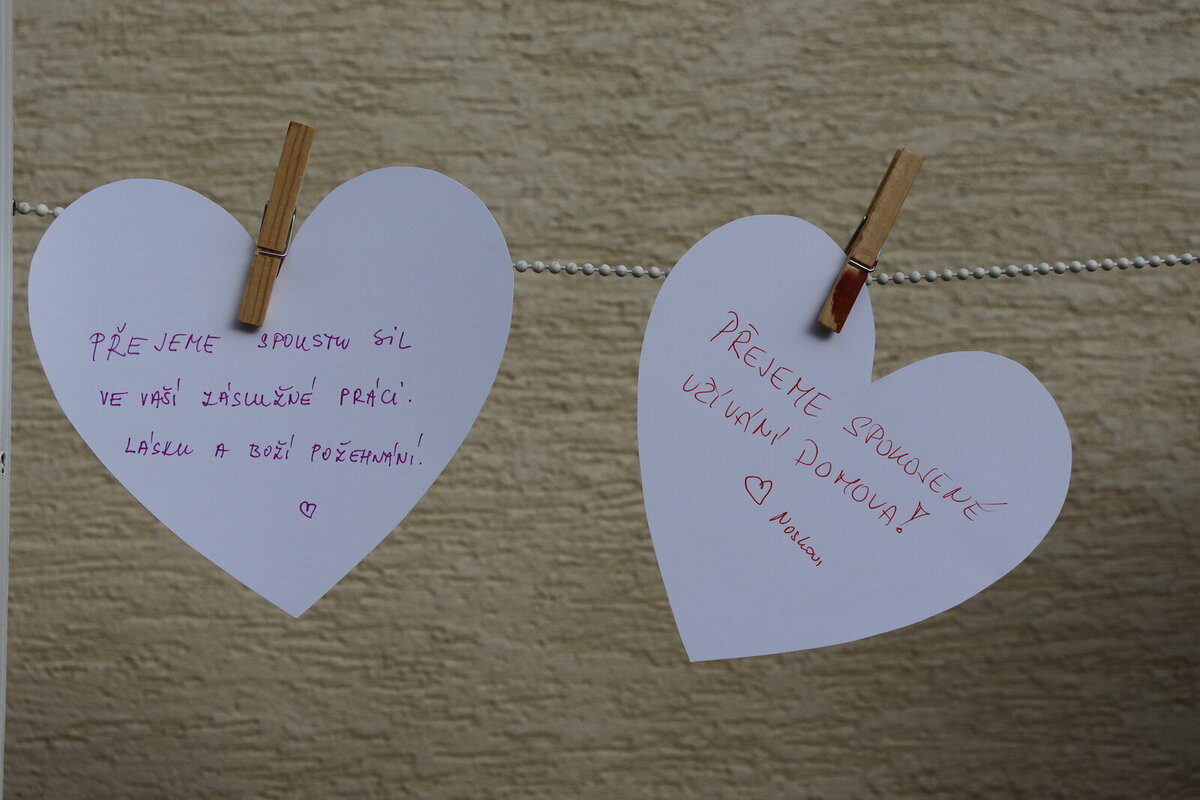 PŘEJEME SPOUSTU SIL
VE VAŠÍ ZÁSLUŽNÉ PRÁCI.
LÁSKU A BOŽÍ POŽEHNÁNÍ!
PŘEJEME SPOKOJENÉ
UŽÍVÁNÍ DOMOVA!
Noskovi